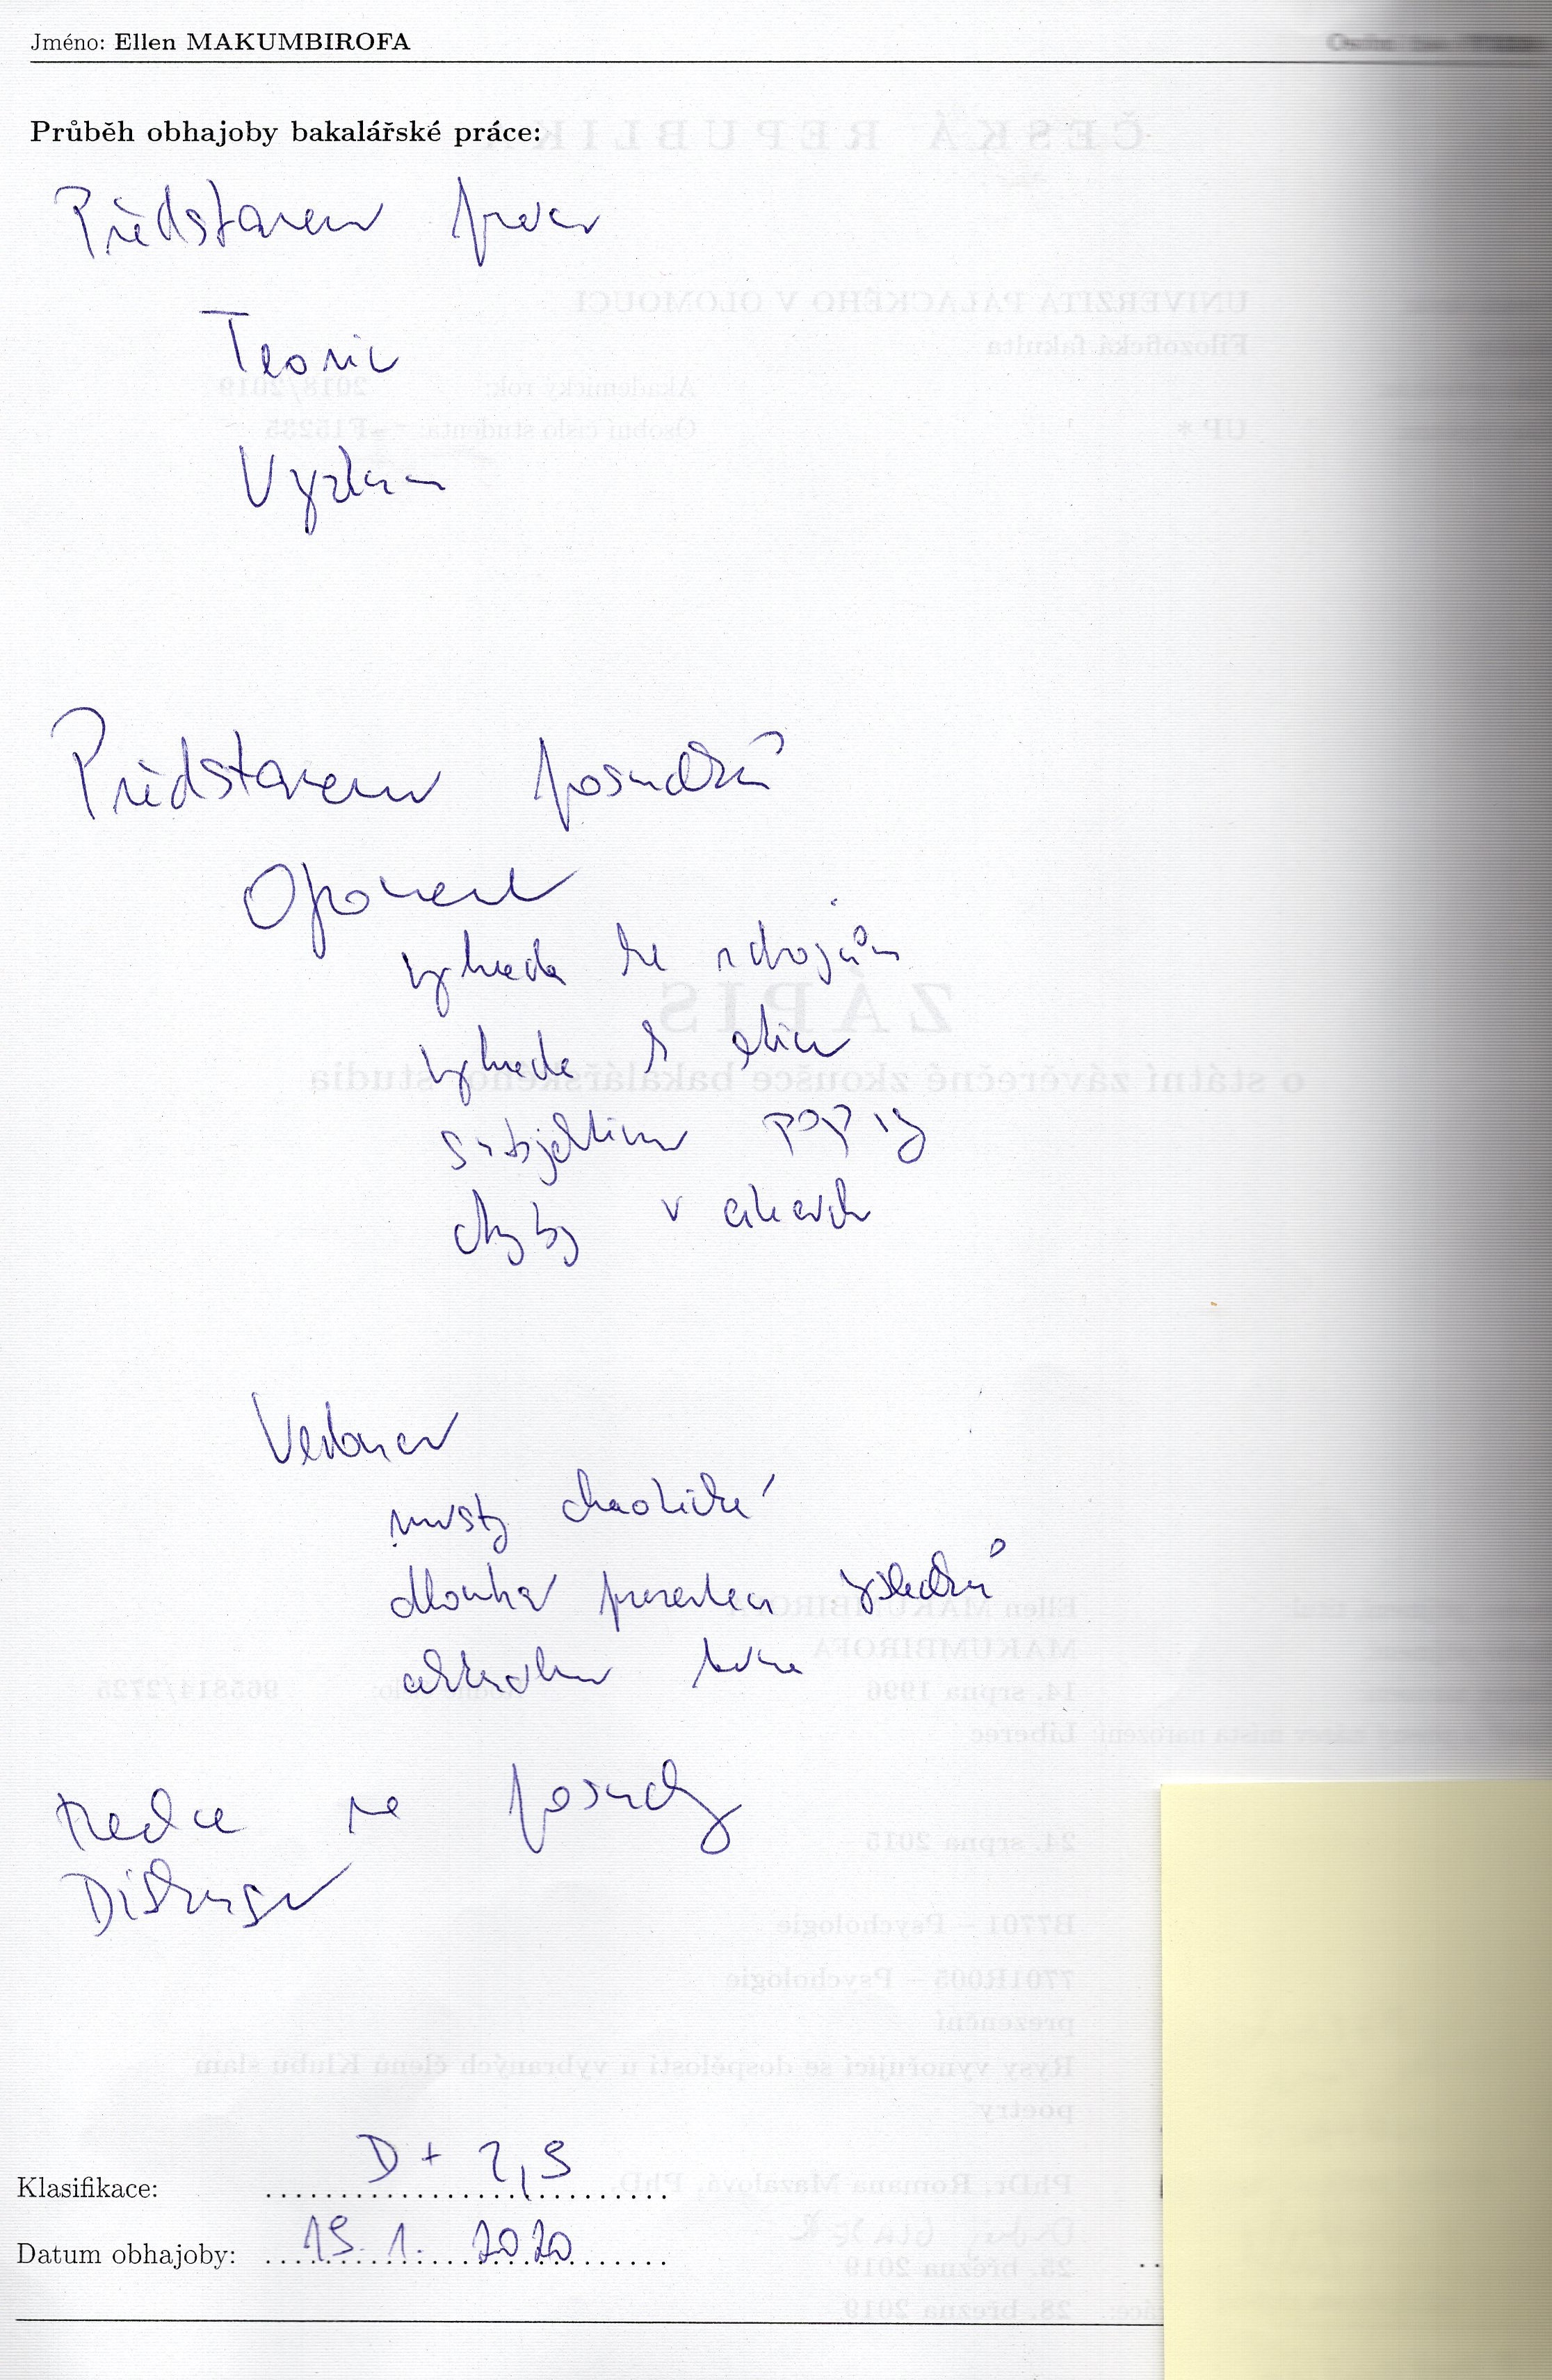 Jméno: Ellen MAKUMBIROFA
Průběh obhajoby bakalářské práce:
Představení práce
Teorie
Výzkum
Představení posudků
Oponent
výhrada ke zdrojům
výhrada k etice
subjektivní popisy
chyby v citacích
Vedoucí
místy chaotické
dlouhá prezentace výsledků
Reakce na posudky
Diskuse
Klasifikace: D+ 2,5
Datum obhajoby: 15. 1. 2020